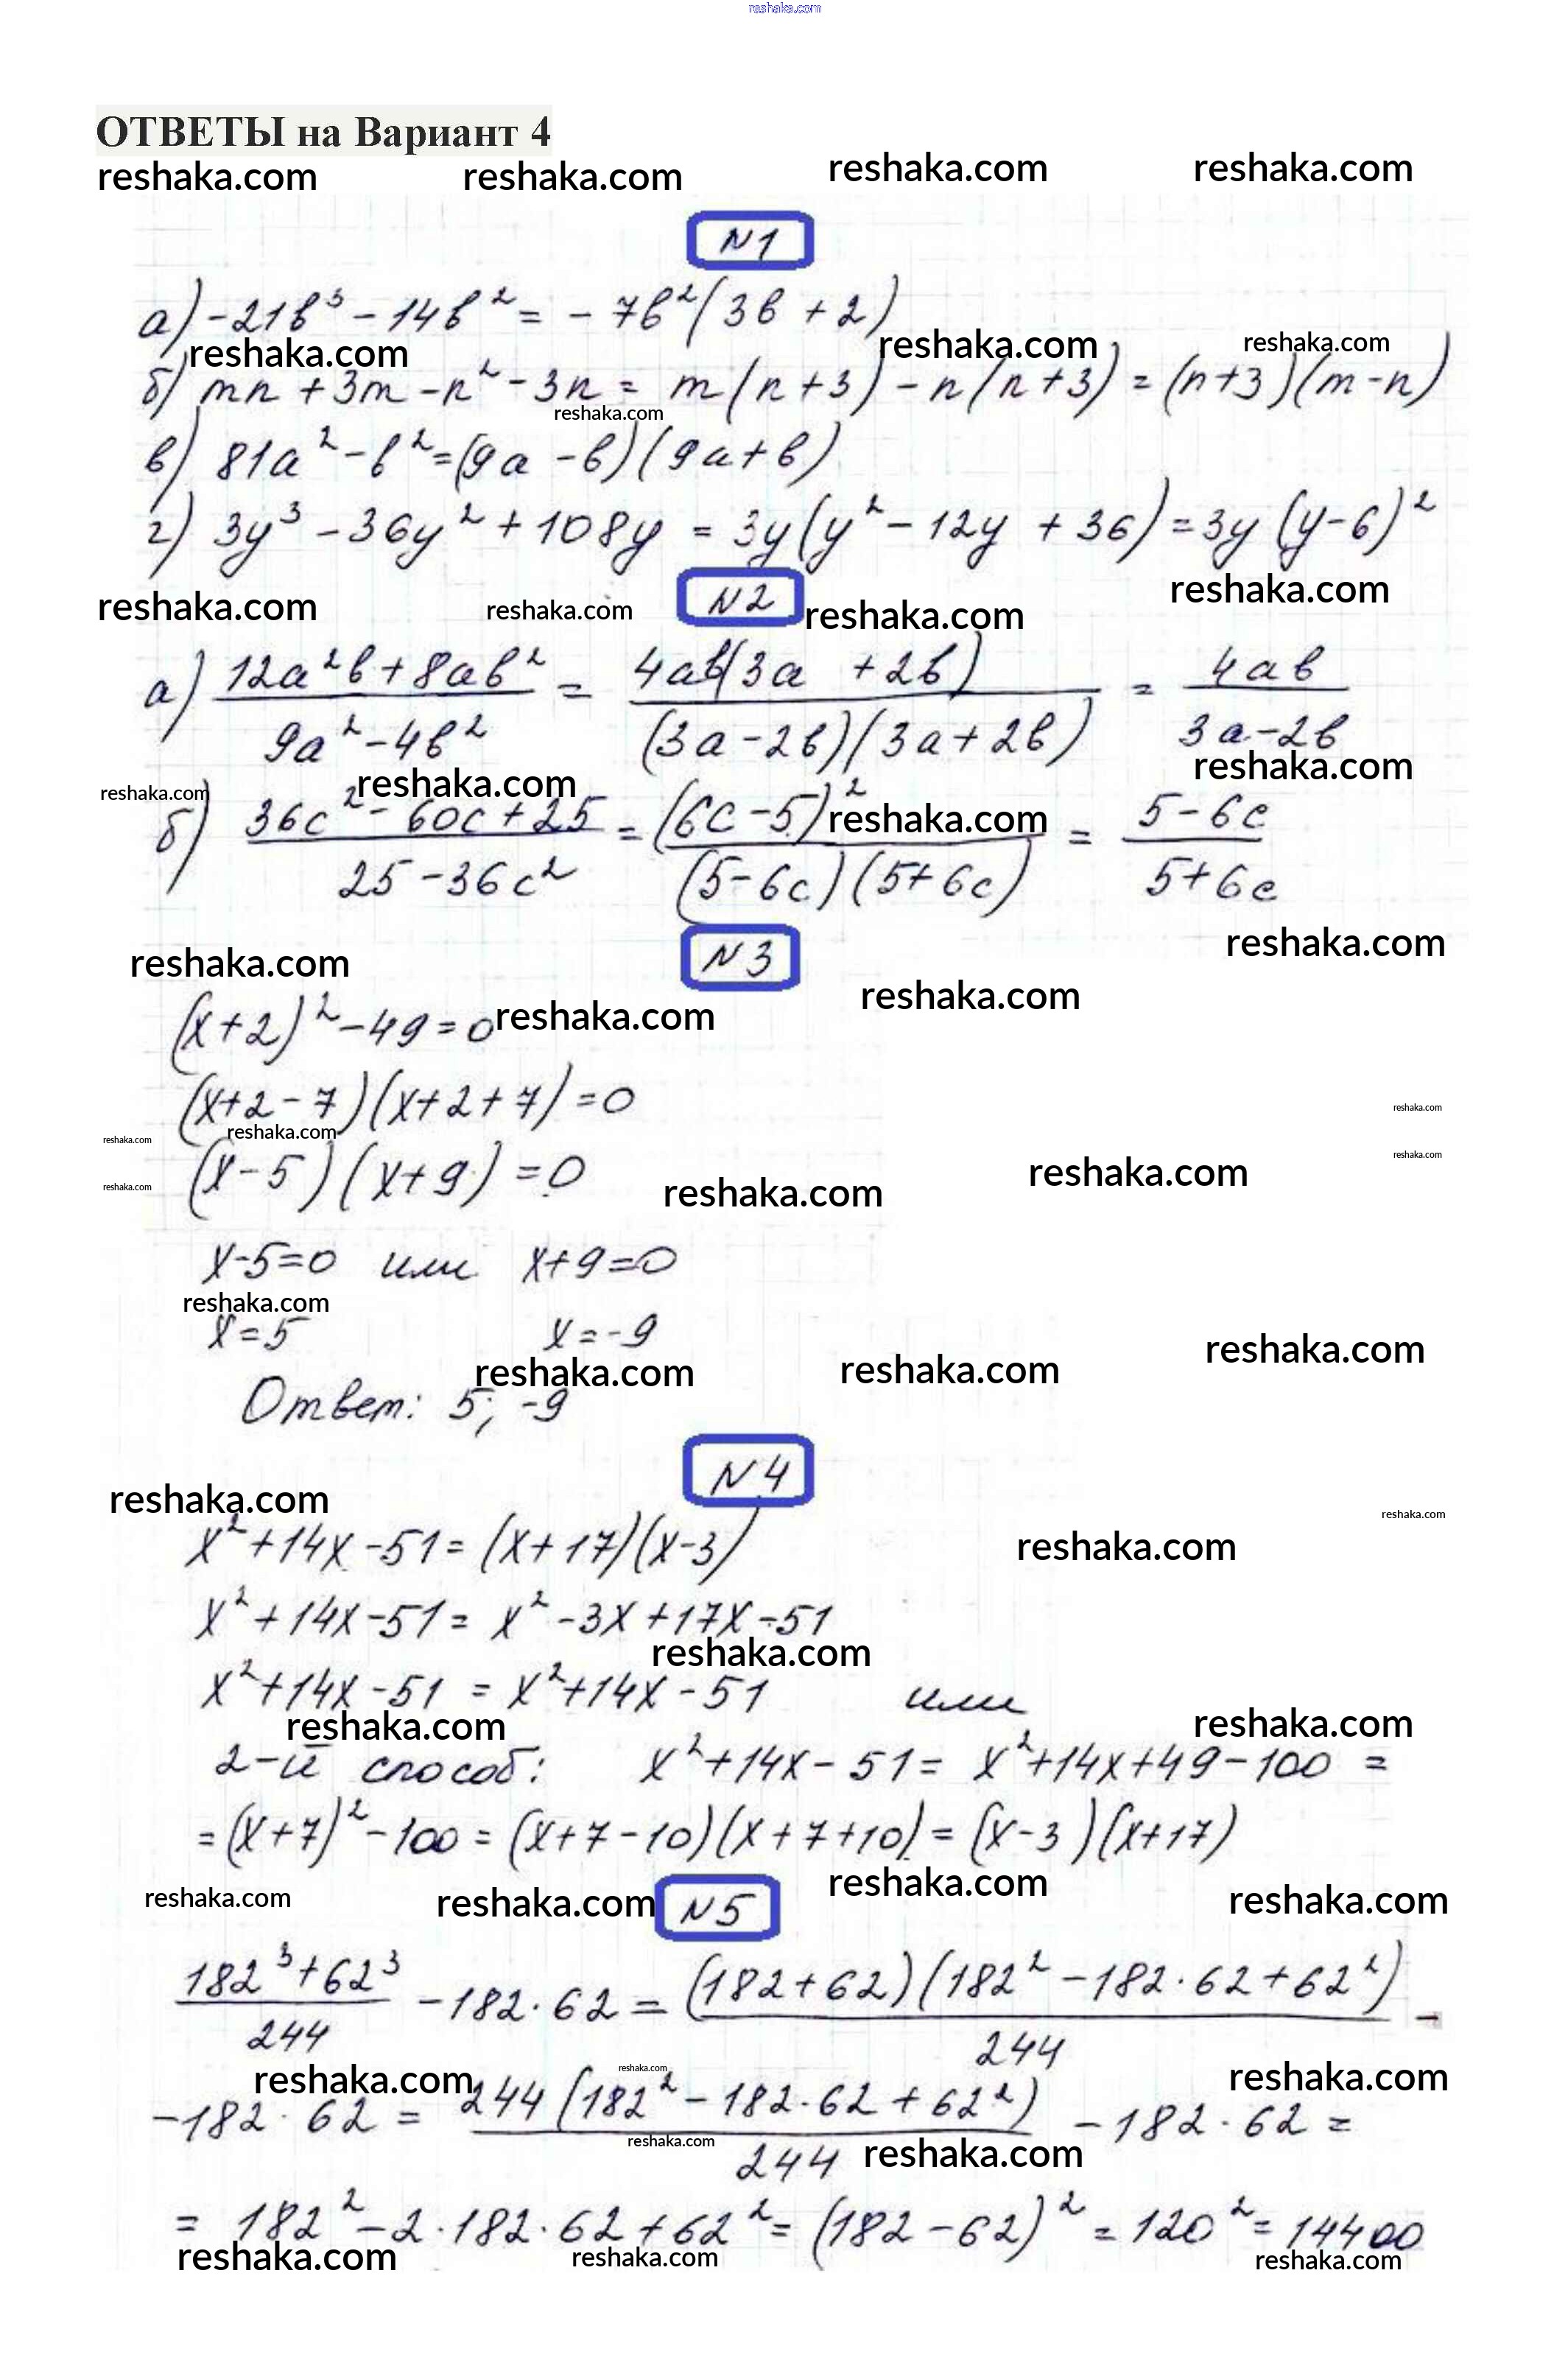 reshaka.com
ОТВЕТЫ на Вариант 4
reshaka.com reshaka.com reshaka.com reshaka.com
N1
а) -21b³ - 14b² = - 7b²(3b + 2)
reshaka.com reshaka.com reshaka.com
б) mn + 3m - n² - 3n = m(n+3) - n(n+3) = (n+3)(m-n)
reshaka.com
в) 81a² - b² = (9a - b)(9a + b)
г) 3y³ - 36y² + 108y = 3y(y² - 12y + 36) = 3y(y-6)²
reshaka.com reshaka.com N2 reshaka.com reshaka.com
а) (12a²b + 8ab²)/(9a² - 4b²) = 4ab(3a + 2b)/((3a - 2b)(3a + 2b)) = 4ab/(3a - 2b)
reshaka.com reshaka.com reshaka.com
б) (36c² - 60c + 25)/(25 - 36c²) = (6c - 5)²/((5 - 6c)(5 + 6c)) = (5 - 6c)/(5 + 6c)
reshaka.com
N3
reshaka.com reshaka.com
reshaka.com
(x+2)² - 49 = 0 reshaka.com
(x+2-7)(x+2+7) = 0
reshaka.com
reshaka.com reshaka.com
reshaka.com
(x-5)(x+9) = 0
reshaka.com reshaka.com reshaka.com
x-5=0 или x+9=0
reshaka.com
x=5 x=-9
reshaka.com reshaka.com reshaka.com
Ответ: 5; -9
N4
reshaka.com reshaka.com
x² + 14x - 51 = (x+17)(x-3)
reshaka.com
x² + 14x - 51 = x² - 3x + 17x - 51
reshaka.com
x² + 14x - 51 = x² + 14x - 51 или
reshaka.com reshaka.com
2-й способ: x² + 14x - 51 = x² + 14x + 49 - 100 =
= (x+7)² - 100 = (x+7-10)(x+7+10) = (x-3)(x+17)
reshaka.com reshaka.com N5 reshaka.com reshaka.com
(182³ + 62³)/244 - 182·62 = (182+62)(182² - 182·62 + 62²)/244 -
reshaka.com reshaka.com reshaka.com
- 182·62 = 244(182² - 182·62 + 62²)/244 - 182·62 =
reshaka.com reshaka.com
= 182² - 2·182·62 + 62² = (182 - 62)² = 120² = 14400
reshaka.com reshaka.com reshaka.com